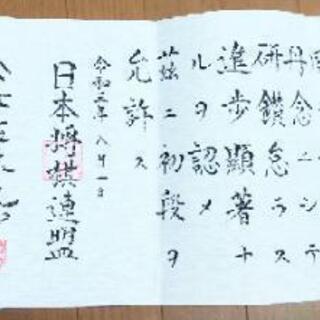 丹念ニシテ
研鑽怠ラス
進歩顕著ナ
ルヲ認メ
茲ニ初段ヲ
允許ス
令和元年八月一日
日本将棋連盟